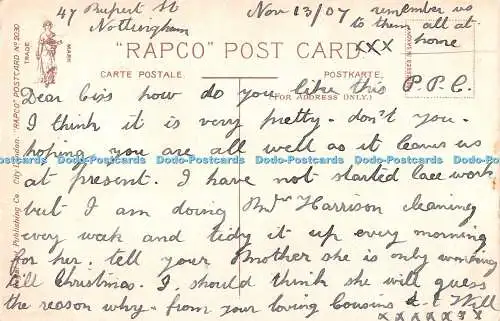 47 Rupert St Nov 13/07 remember us
Nottingham to them all at
home
"RAPCO" POST CARD.
XXX
CARTE POSTALE. POSTKARTE.
(FOR ADDRESS ONLY.)
Dear Cis how do you like this P.P.C.
I think it is very pretty - don't you -
hoping you are all well as it leaves us
at present. I have not started lace work
but I am doing Mrs Harrison cleaning
every week and tidy it up every morning
for her. tell your Mother she is only working
till Christmas. I should think she will guess
the reason why - from your loving Cousins & Will
x x x x x x x
TRADE MARK
"RAPCO" POSTCARD No 2030
Publishing Co City London.
Dodo-Postcards Dodo-Postcards Dodo-Postcards Dodo-Postcards Dodo-Postcards Dodo-Postcards